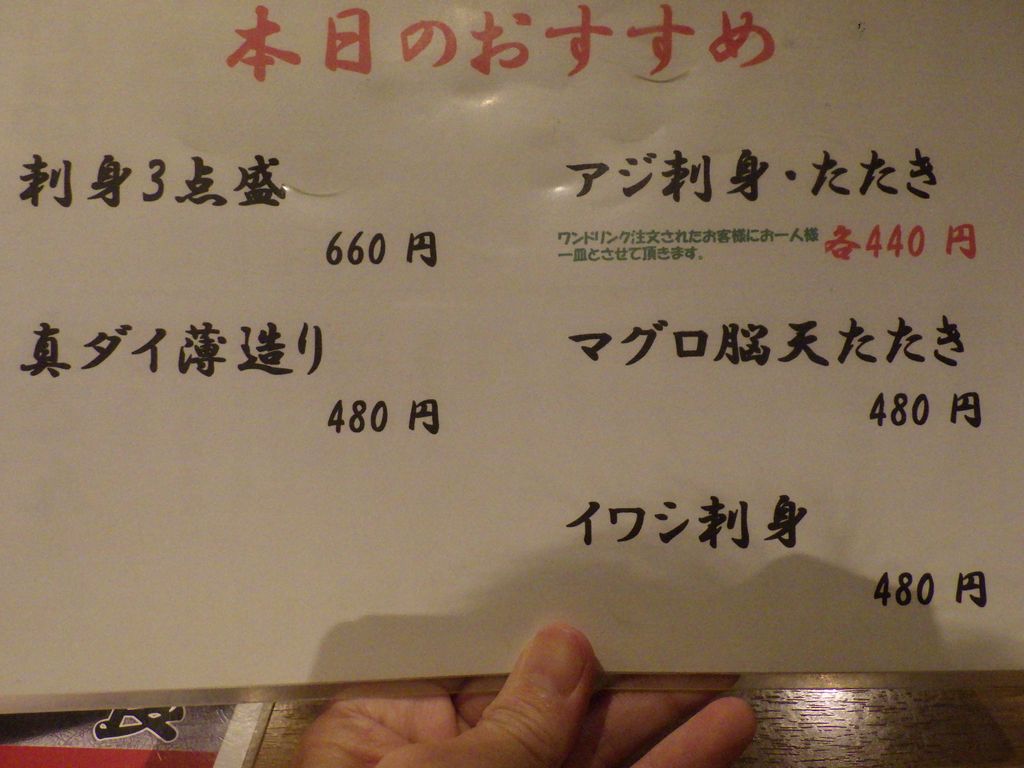 本日のおすすめ
刺身3点盛
660 円
真ダイ薄造り
480 円
アジ刺身・たたき
ワンドリンク注文されたお客様にお一人様
一皿とさせて頂きます。
各440 円
マグロ脳天たたき
480 円
イワシ刺身
480 円